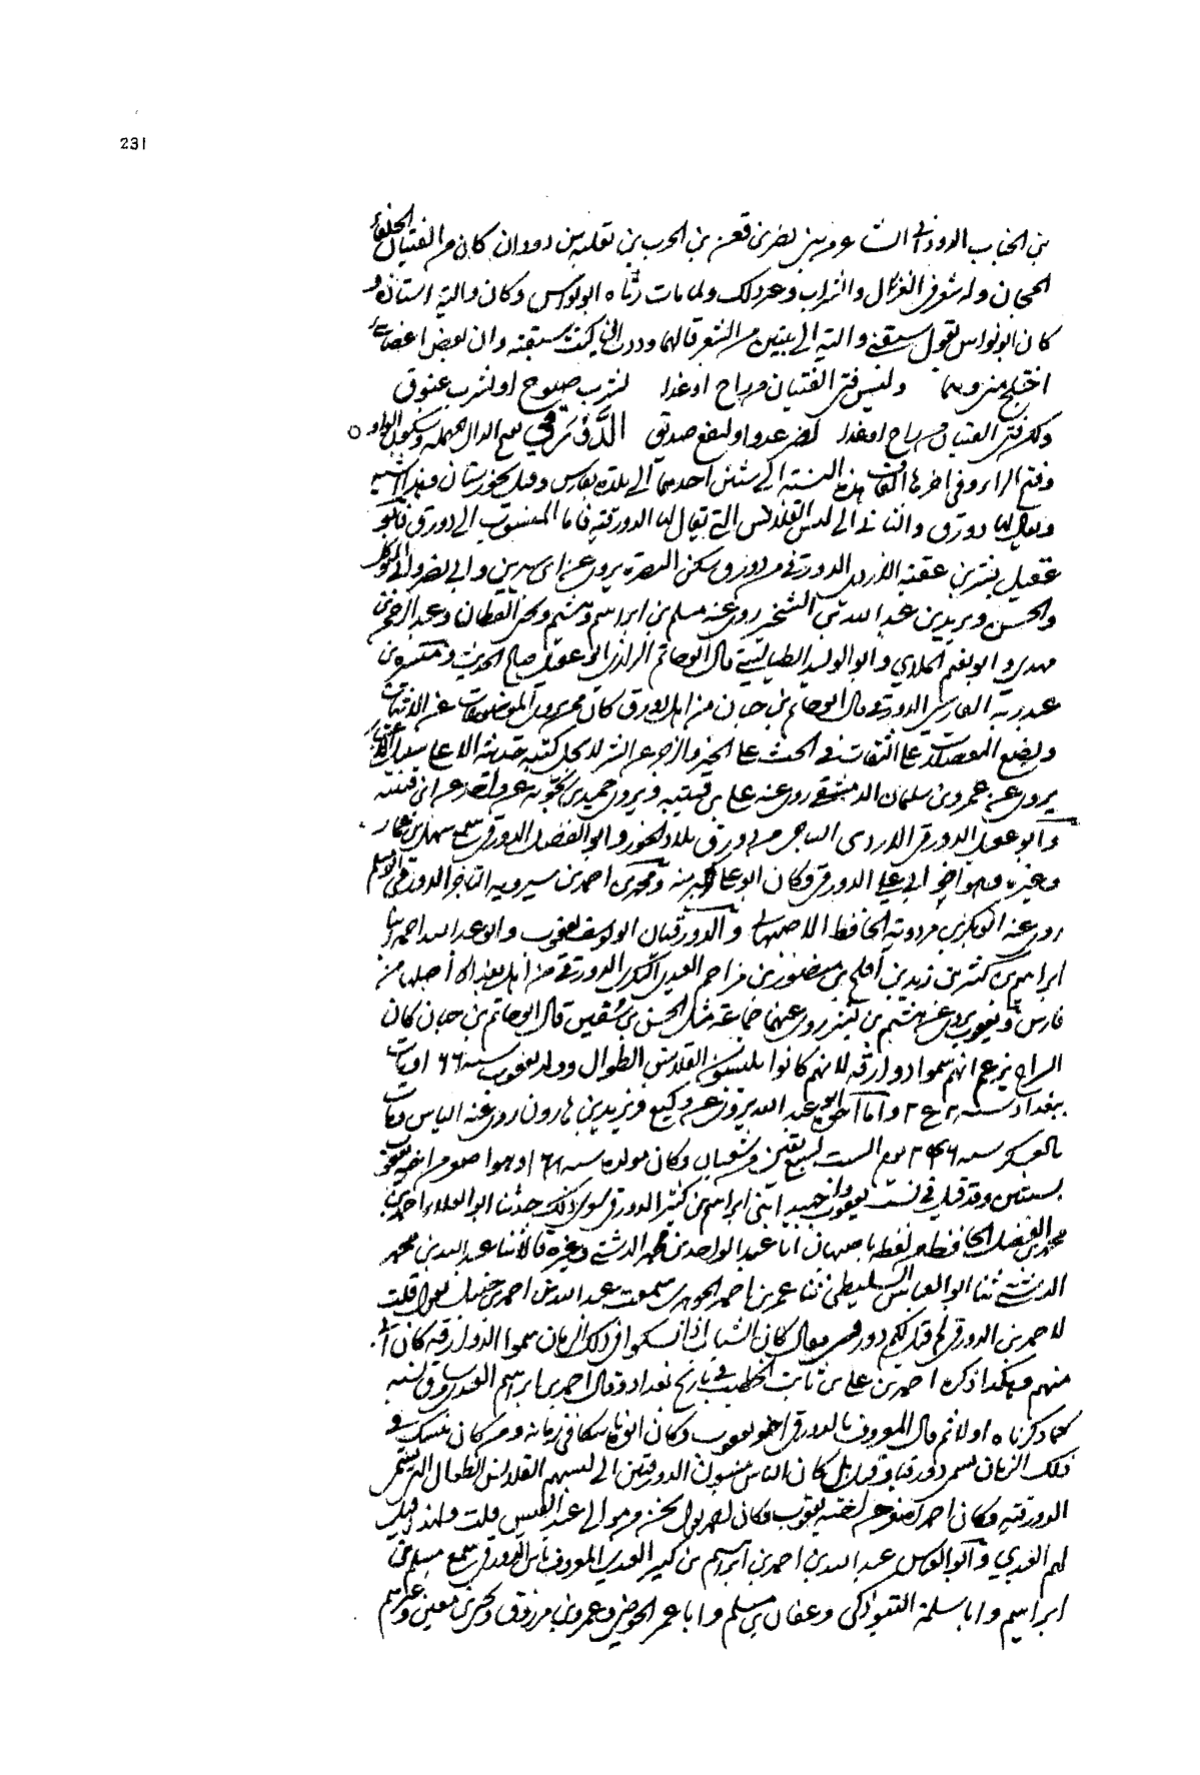 231
بن الحباب الدوداني الشاعر من بني نصر بن قعين بن الحرب بن ثعلبة بن دودان كان من الفتيان الخلعاء
المجان وله شعر في الغزل والشراب وغير ذلك ولما مات رثاه ابو نواس وكان والبة استاذه و
كان ابو نواس يقول سبقني والبة الى بيتين من الشعر قالهما وددت اني كنت سبقته وان بعض اعضائي
اختلج مني وهما وليس فتى الفتيان من راح او غدا لشرب صبوح او لشرب غبوق
ولكن فتى الفتيان من راح او غدا لضر عدو او لنفع صديق الدَّوْرَقي بفتح الدال المهملة وسكون الواو
وفتح الراء وفي اخرها القاف هذه النسبة الى شيئين احدهما الى بلدة بفارس وقيل بخوزستان وهذا اشبه
ويقال لها دورق والثاني الى لبس القلانس التي يقال لها الدورقية فاما المنسوب الى دورق فابو
عقيل بشير بن عقبة الازدي الدورقي من دورق سكن البصرة يروي عن ابن سيرين وابي نضرة وابي المتوكل
والحسن ويزيد بن عبد الله بن الشخير روى عنه مسلم بن ابراهيم وهشيم ويحيى القطان وعبد الرحمن بن
مهدي وابو نعيم الملائي وابو الوليد الطيالسي قال ابو حاتم الرازي ابو عقيل صالح الحديث وميسرة بن
عبد ربه الفارسي الدورقي قال ابو حاتم بن حبان من اهل دورق كان ممن يروي الموضوعات عن الاثبات
ويضع المعضلات على الثقات في الحث على الخير والزجر عن الشر لا يحل كتبة حديثه الا على سبيل الاعتبار
يروي عن عمرو بن سليمان الدمشقي روى عنه علي بن قتيبة ويروي حميد بن زنجويه عن واحد عن ابن قتيبة
وابو عقيل الدورقي الازدي التاجر من دورق بلاد الخوز وابو الفضل الدورقي سمع سهل بن عمار
وغيره وهو اخو ابي علي الدورقي وكان ابو علي اكبر منه ومحمد بن احمد بن سيرويه التاجر الدورقي ابو مسلم
روى عنه ابو بكر بن مردويه الحافظ الاصبهاني والدورقيان ابو يوسف يعقوب وابو عبد الله احمد ابنا
ابراهيم بن كثير بن زيد بن افلح بن منصور بن مزاحم العبدي النكري الدورقي من اهل بغداد اصلهما من
فارس ويعقوب يروي عن هشيم بن بشير روى عنهما جماعة مثل الحسن بن سفيان قال ابو حاتم بن حبان كان
السراج يزعم انهم سموا دوارقة لانهم كانوا يلبسون القلانس الطوال وولد يعقوب سنة ١٦٦ ومات
ببغداد سنة ٢٤٢ واما اخوه ابو عبد الله يروي عن وكيع ويزيد بن هارون روى عنه الناس ومات
بالعسكر سنة ٢٤٦ يوم السبت لسبع بقين من شعبان وكان مولده سنة ١٦٨ وهو اصغر من اخيه يعقوب
بسنتين وقد قيل في نسبة يعقوب واخيه ابني ابراهيم بن كثير الدورقي سوى ذلك حدثنا ابو العلاء احمد بن
محمد بن الفضل الحافظ من لفظه باصبهان انا عبد الواحد بن محمد الدشتي وغيره قالا انا عبد الله بن محمد
الدشتي ثنا ابو العباس السليطي ثنا عمر بن احمد الجوهري سمعت عبد الله بن احمد بن حنبل يقول قلت
لاحمد بن الدورقي لم قيل لكم دورقي فقال كان الشباب اذا نسكوا في ذلك الزمان سموا الدوارقة كان ابي
منهم وهكذا ذكره احمد بن علي بن ثابت الخطيب في تاريخ بغداد وقال احمد بن ابراهيم العبدي وساق نسبه
كما ذكرناه اولا ثم قال المعروف بالدورقي اخو يعقوب وكان ابوه ناسكا في زمانه ومن كان يتنسك في
ذلك الزمان يسمى دورقيا وقيل بل كان الناس ينسبون الدورقيين الى لبسهم القلانس الطوال التي تسمى
الدورقية وكان احمد اصغر من اخيه يعقوب وكان لهم ... موالي عبد القيس قلت ولهذا قيل
لهم العبدي وابو العباس عبد الله بن احمد بن ابراهيم بن كثير العبدي المعروف بابن الدورقي سمع مسلم بن
ابراهيم وابا سلمة التبوذكي وعفان بن مسلم وابا عمر الحوضي وعمرو بن مرزوق ويحيى بن معين وغيرهم